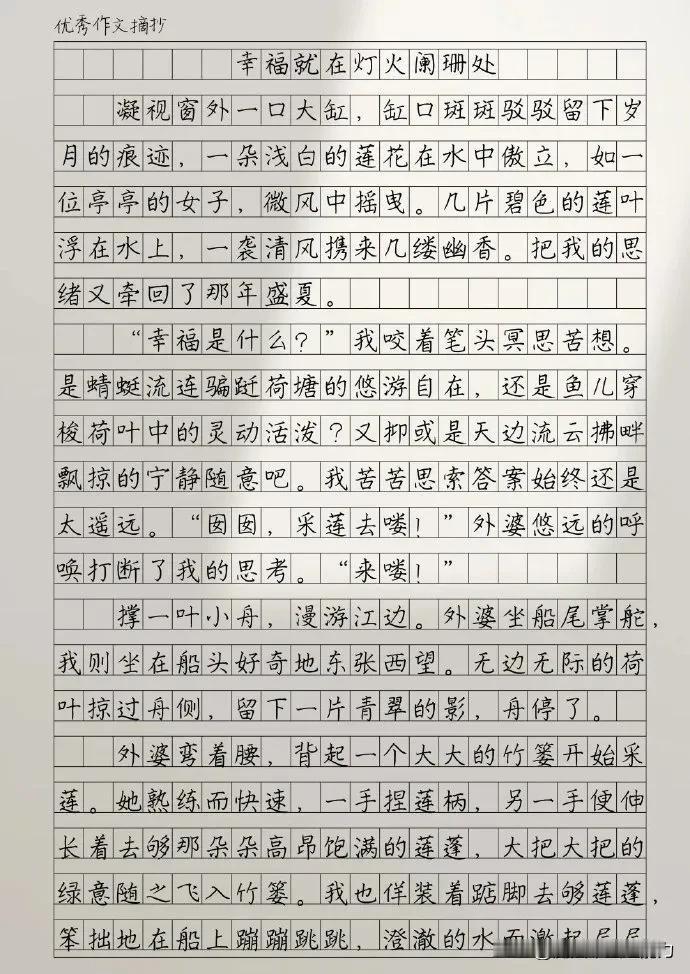 优秀作文摘抄
幸福就在灯火阑珊处
凝视窗外一口大缸，缸口斑斑驳驳留下岁
月的痕迹，一朵浅白的莲花在水中傲立，如一
位亭亭的女子，微风中摇曳。几片碧色的莲叶
浮在水上，一袭清风携来几缕幽香。把我的思
绪又牵回了那年盛夏。
“幸福是什么？”我咬着笔头冥思苦想。
是蜻蜓流连骗跹荷塘的悠游自在，还是鱼儿穿
梭荷叶中的灵动活泼？又抑或是天边流云拂畔
飘掠的宁静随意吧。我苦苦思索答案始终还是
太遥远。“囡囡，采莲去喽！”外婆悠远的呼
唤打断了我的思考。“来喽！”
撑一叶小舟，漫游江边。外婆坐船尾掌舵，
我则坐在船头好奇地东张西望。无边无际的荷
叶掠过舟侧，留下一片青翠的影，舟停了。
外婆弯着腰，背起一个大大的竹篓开始采
莲。她熟练而快速，一手捏莲柄，另一手便伸
长着去够那朵朵高昂饱满的莲蓬，大把大把的
绿意随之飞入竹篓。我也佯装着踮脚去够莲蓬，
笨拙地在船上蹦蹦跳跳，澄澈的水面激起层层